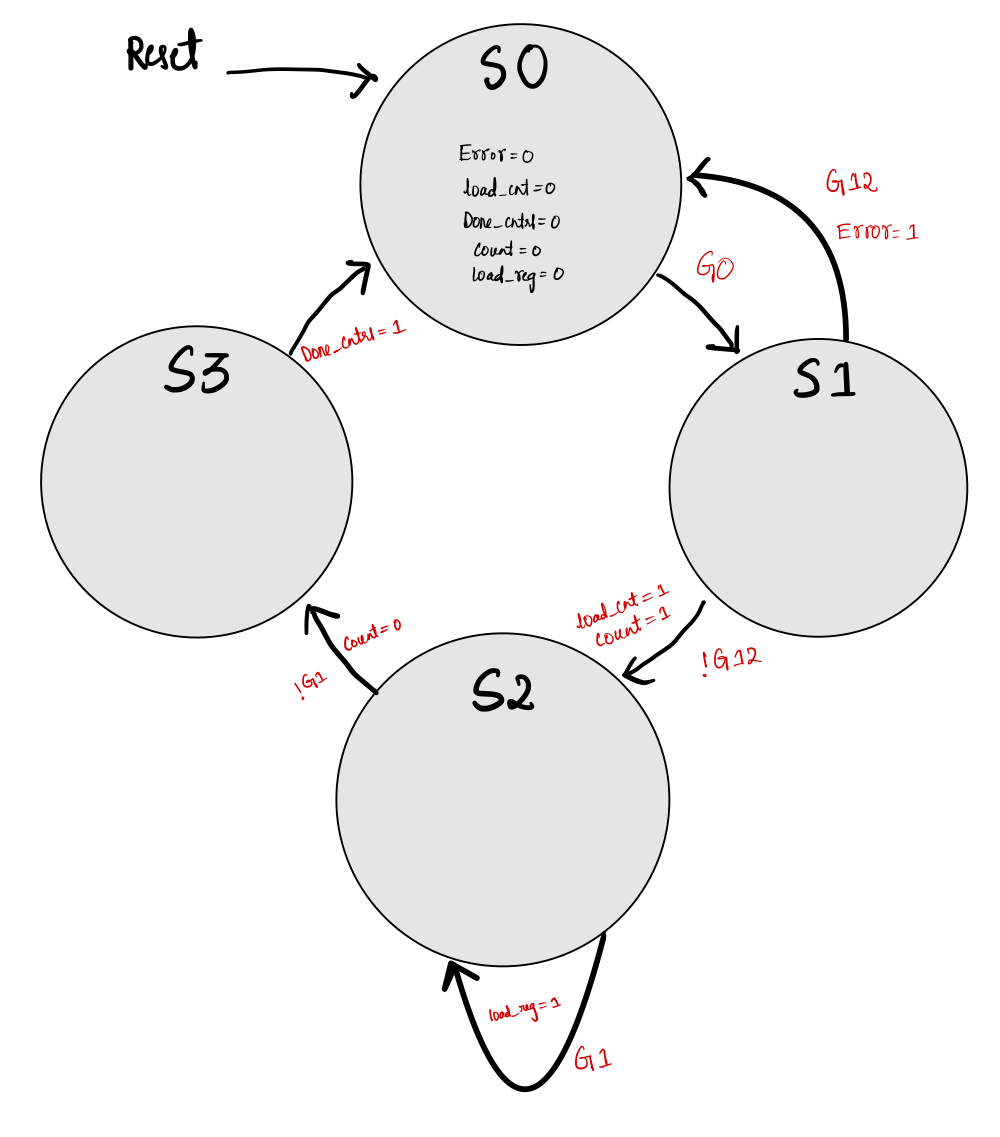 Reset
S0
Error = 0
load_cnt = 0
Done_cntrl = 0
Count = 0
load_reg = 0
G12
Error = 1
GO
Done_cntrl = 1
S3
S1
load_cnt = 1
Count = 1
!G12
Count = 0
!G1
S2
load_reg = 1
G1